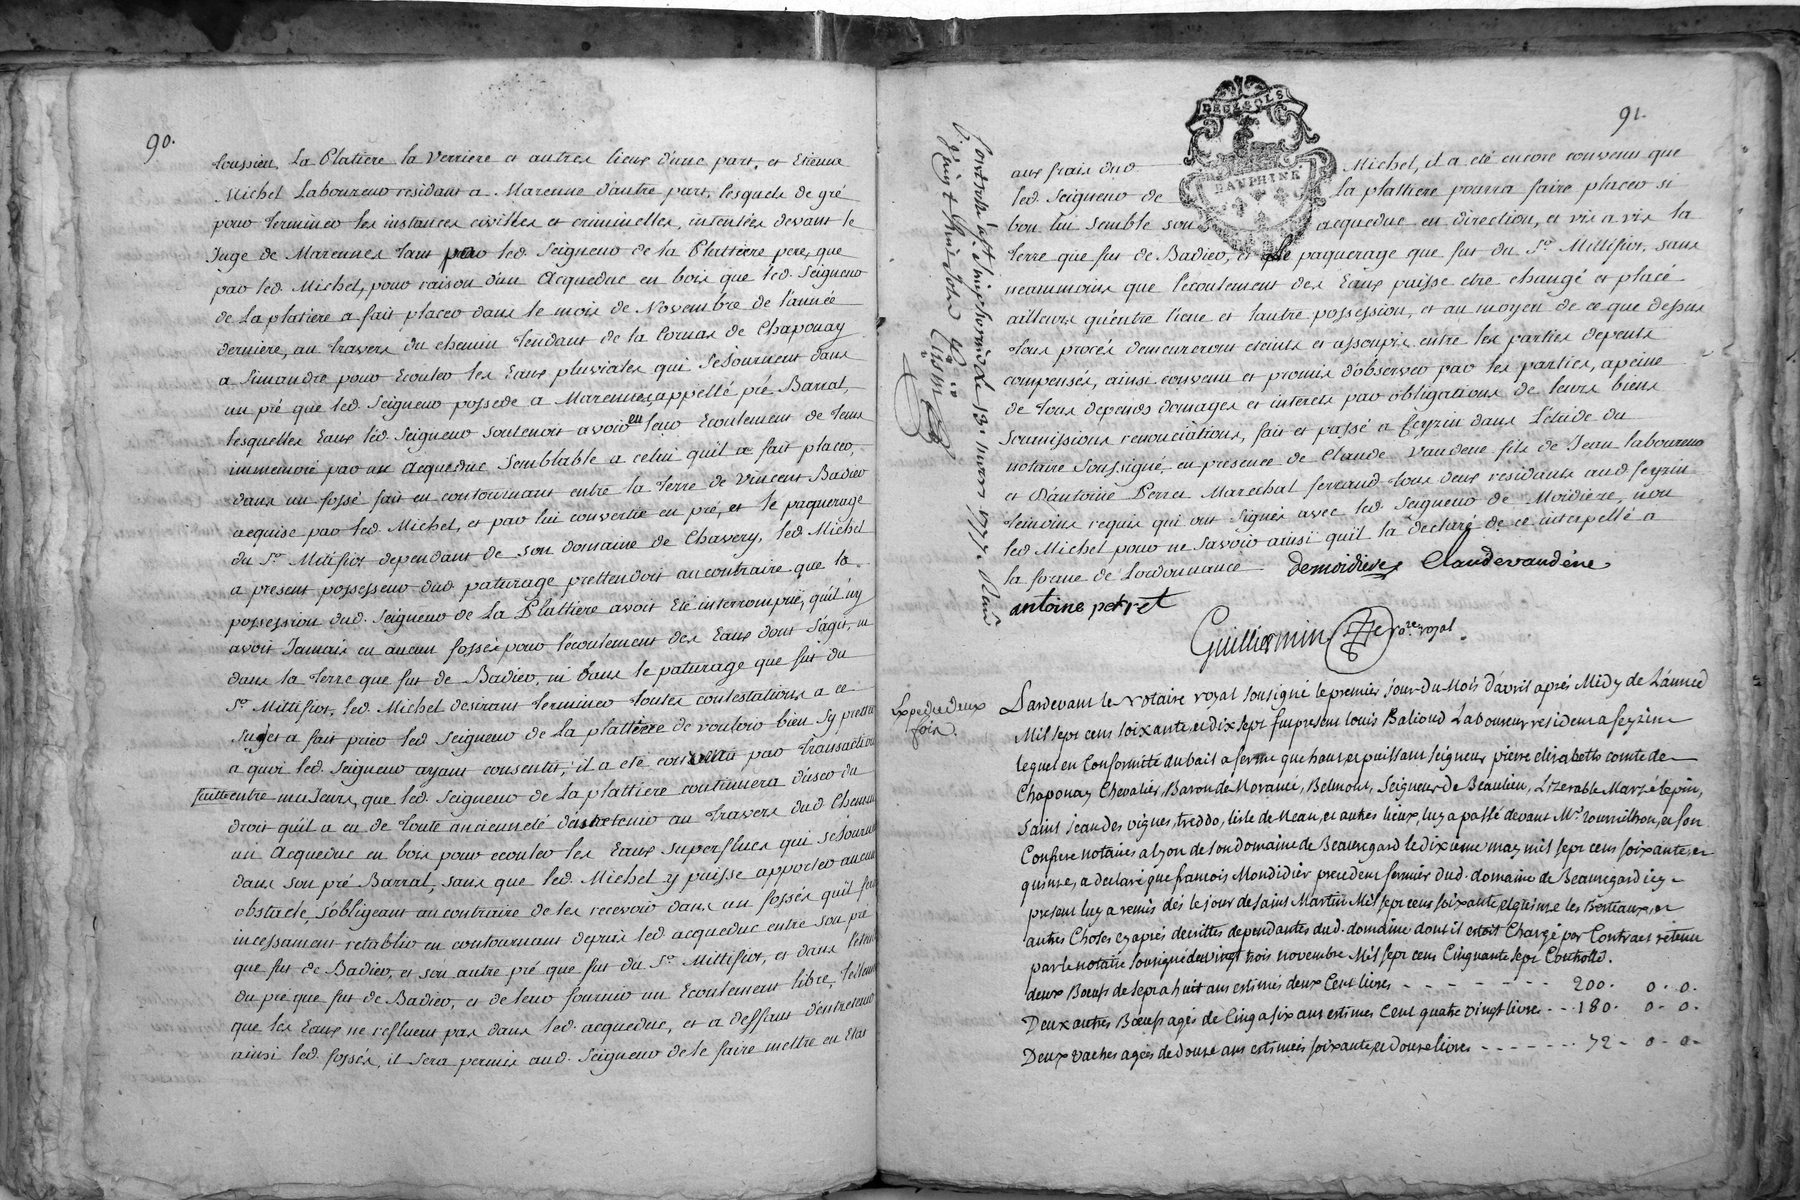 90.
toussieu, La Platiere la Verriere et autres lieux d'une part, et Etienne
Michel Laboureur residant a Marenne d'autre part, lesquels de gré
pour terminer les instances civilles et criminelles, intentées devant le
Juge de Marennes tant par led. Seigneur de la Plattiere pere, que
par led. Michel, pour raison d'un Acqueduc en bois que led. Seigneur
de La platiere a fait placer dans le mois de Novembre de l'année
derniere, au travers du chemin tendant de la Cornas de Chaponay
a Simandre pour Ecouler les Eaux pluviales qui Séjournent dans
un pré que led. Seigneur possede a Marennes, appellé pré Barral,
lesquelles Eaux led. Seigneur soutenoit avoir en leur Ecoulement de tems
immemoré par un Acqueduc Semblable a celui qu'il a fait placer,
dans un fossé fait en contournant entre la terre de Vincent Badier
acquise par led. Michel, et par lui convertie en pré, et le paquerage
du Sr. Mitifiot dependant de son domaine de Chavery, led. Michel
a present possesseur dud. paturage prettendoit au contraire que la
possession dud. Seigneur de La Plattiere avoit Eté interrompüe, qu'il n'y
avoit Jamais eu aucun fossés pour l'ecoulement des Eaux dont S'agit, ni
dans la terre que fut de Badier, ni dans le paturage que fut du
Sr. Mittifiot, led. Michel desirant terminer toutes contestations a ce
Sujet a fait prier led. Seigneur de La plattiere de vouloir bien s'y pretter
a quoi led. Seigneur ayant consenti, il a eté convenu par transaction
faitte entre mes Sieurs, que led. Seigneur de La plattiere continuera d'user du
droit qu'il a eu de toute ancienneté d'entretenir au travers dud. Chemin
un Acqueduc en bois pour ecouler les Eaux Superflues qui séjournent
dans son pré Barral, sans que led. Michel y puisse apporter aucun
obstacle, s'obligeant au contraire de les recevoir dans un fossés qu'il fera
incessament retablir en contournant depuis led. acqueduc entre son pré
que fut de Badier, et son autre pré que fut du Sr. Mittifiot, et dans l'etendue
du pré que fut de Badier, et de leur fournir un Ecoulement libre, tellement
que les Eaux ne refluent pas dans led. acqueduc, et a deffaut d'entretenir
ainsi led. fossés, il sera permis aud. Seigneur de le faire mettre en Etat
91.
DEUX SOLS
DAUPHINE
aux frais dud. Michel, il a eté encore convenu que
led. Seigneur de La plattiere pourra faire placer si
bon lui semble son acqueduc en direction, et vis a vis la
terre que fut de Badier, et le paquerage que fut du Sr. Mittifiot, sans
neammoins que l'ecoulement des Eaux puisse etre changé et placé
ailleurs qu'entre l'une et l'autre possession, et au moyen de ce que dessus
tous procés demeureront eteints et assoupis entre les parties depens
compensés, ainsi convenu et promis d'observer par les parties, a peine
de tous depends domages et interets par obligations de leurs biens
soumissions renonciations, fait et passé a feyzin dans L'etude du
notaire soussigné, en presence de Claude Vaudene fils de Jean laboureur
et d'Antoine Perret Marechal ferrand tous deux residants aud. feyzin
temoins requis qui ont signés avec led. Seigneur de Moidiere, non
led. Michel pour ne savoir ainsi qu'il la declaré de ce interpellé a
la forme de L'ordonnance demoidiere Claude vaudène
antoine perret
Guilliermin nore royal.
Expedie deux
fois.
Pardevant le Notaire royal sousigné le premier jour du Mois d'avril aprés Midy de L'année
Mil sept cens soixante et dix sept fut present louis Baliond Laboureur resident a feyzin
lequel en Conformité du bail a ferme que haut et puissant Seigneur pierre elizabeth comte de
Chaponay Chevalier, Baron de Morancé, Belmont, Seigneur de Beaulieu, Lizerable Marzé lepin,
Saint Jean des vignes, treddo, lisle de Mean, et autres lieux luy a passé devant Me. tournilhon, et son
Confrere notaires a lyon de son domaine de Beauregard le dixieme may mil sept cens soixante et
quinze, a declaré que francois Mondidier precedent fermier dud. domaine de Beauregard icy
present luy a remis dès le jour de Saint Martin Mil sept cens soixante et quinze les Bestiaux, et
autres Choses cy aprés décrittes dependantes dud. domaine dont il etoit Chargé par Contract retenu
par le notaire sousigné du vingt trois novembre Mil sept cens Cinquante sept Controllé.
deux Boeufs de sept a huit ans estimés deux Cent livres - - - - - - - 200. 0. 0.
Deux autres Boeufs agés de Cinq a six ans estimés Cent quatre vingt livres - - 180. 0. 0.
Deux Vaches agées de douze ans estimées soixante et douze livres - - - - - - - 72 - 0 - 0 -